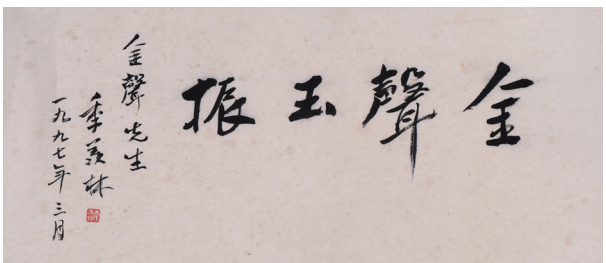 金聲玉振
金聲先生
季羨林
一九九七年三月